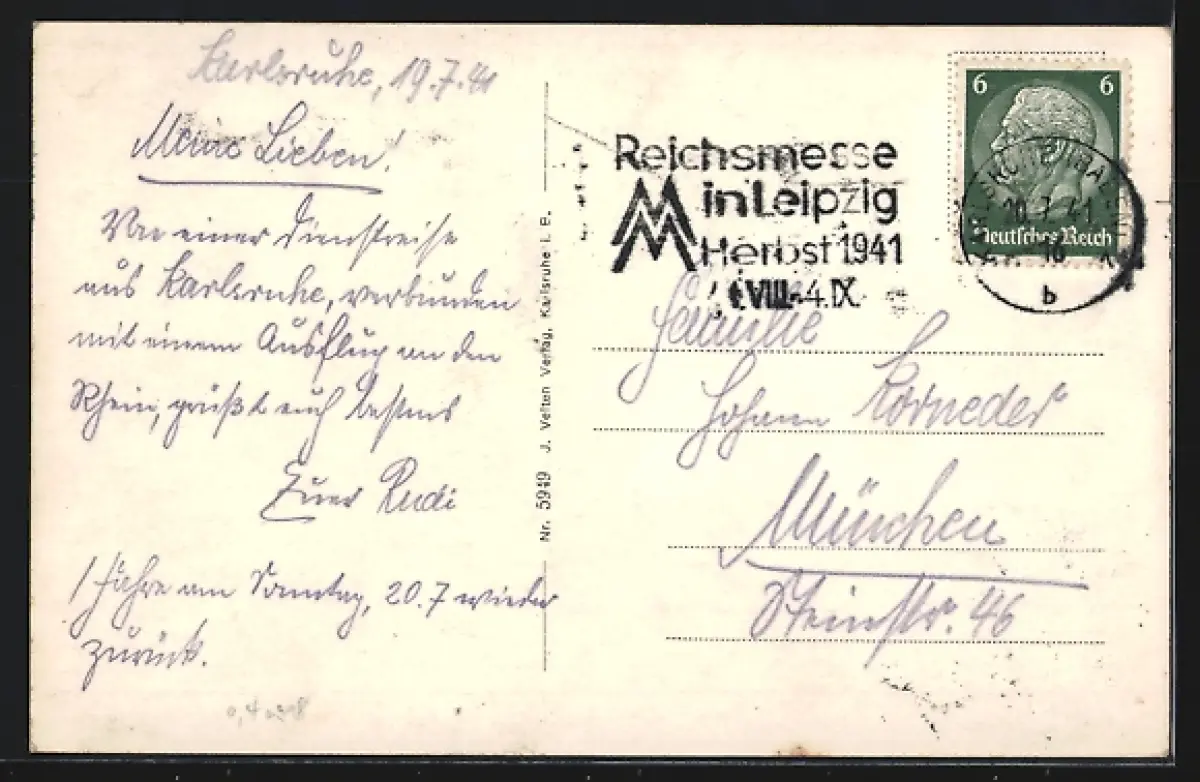 Karlsruhe, 19.7.41
Meine Lieben!
Von einer Dienstreise
aus Karlsruhe, verbunden
mit einem Ausflug an den
Rhein, grüßt euch bestens
Euer Rudi
/ Fahre am Sonntag, 20.7 wieder
zurück.
Nr. 5949 J. Velten Verlag, Karlsruhe i. B.
Reichsmesse
in Leipzig
Herbst 1941
VIII.-4.IX.
6 6
Deutsches Reich
20.7.41
b
Familie
Johann Korneder
München
Steinstr. 46